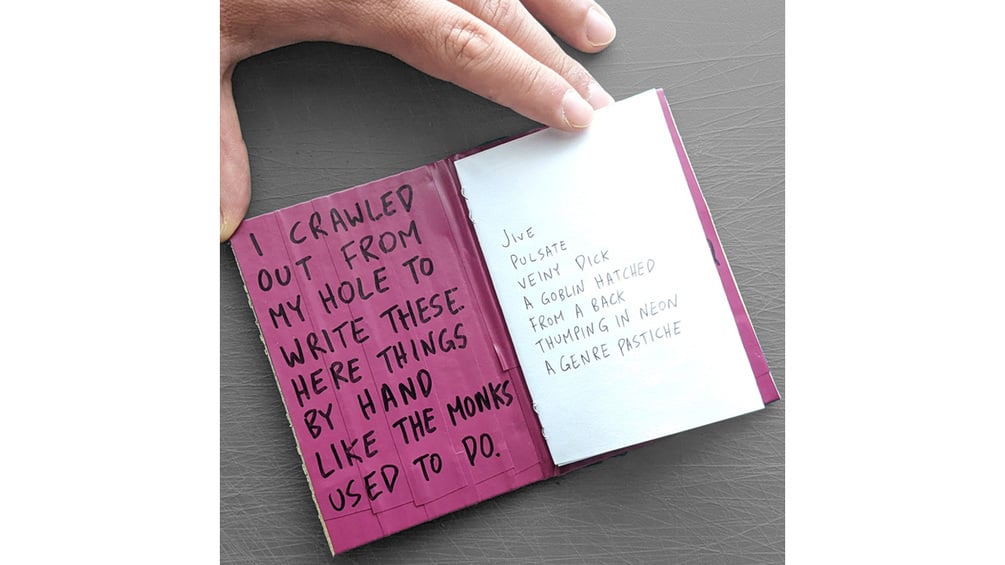 I CRAWLED
OUT FROM
MY HOLE TO
WRITE THESE
HERE THINGS
BY HAND
LIKE THE MONKS
USED TO DO.
JIVE
PULSATE
VEINY DICK
A GOBLIN HATCHED
FROM A BACK
THUMPING IN NEON
A GENRE PASTICHE